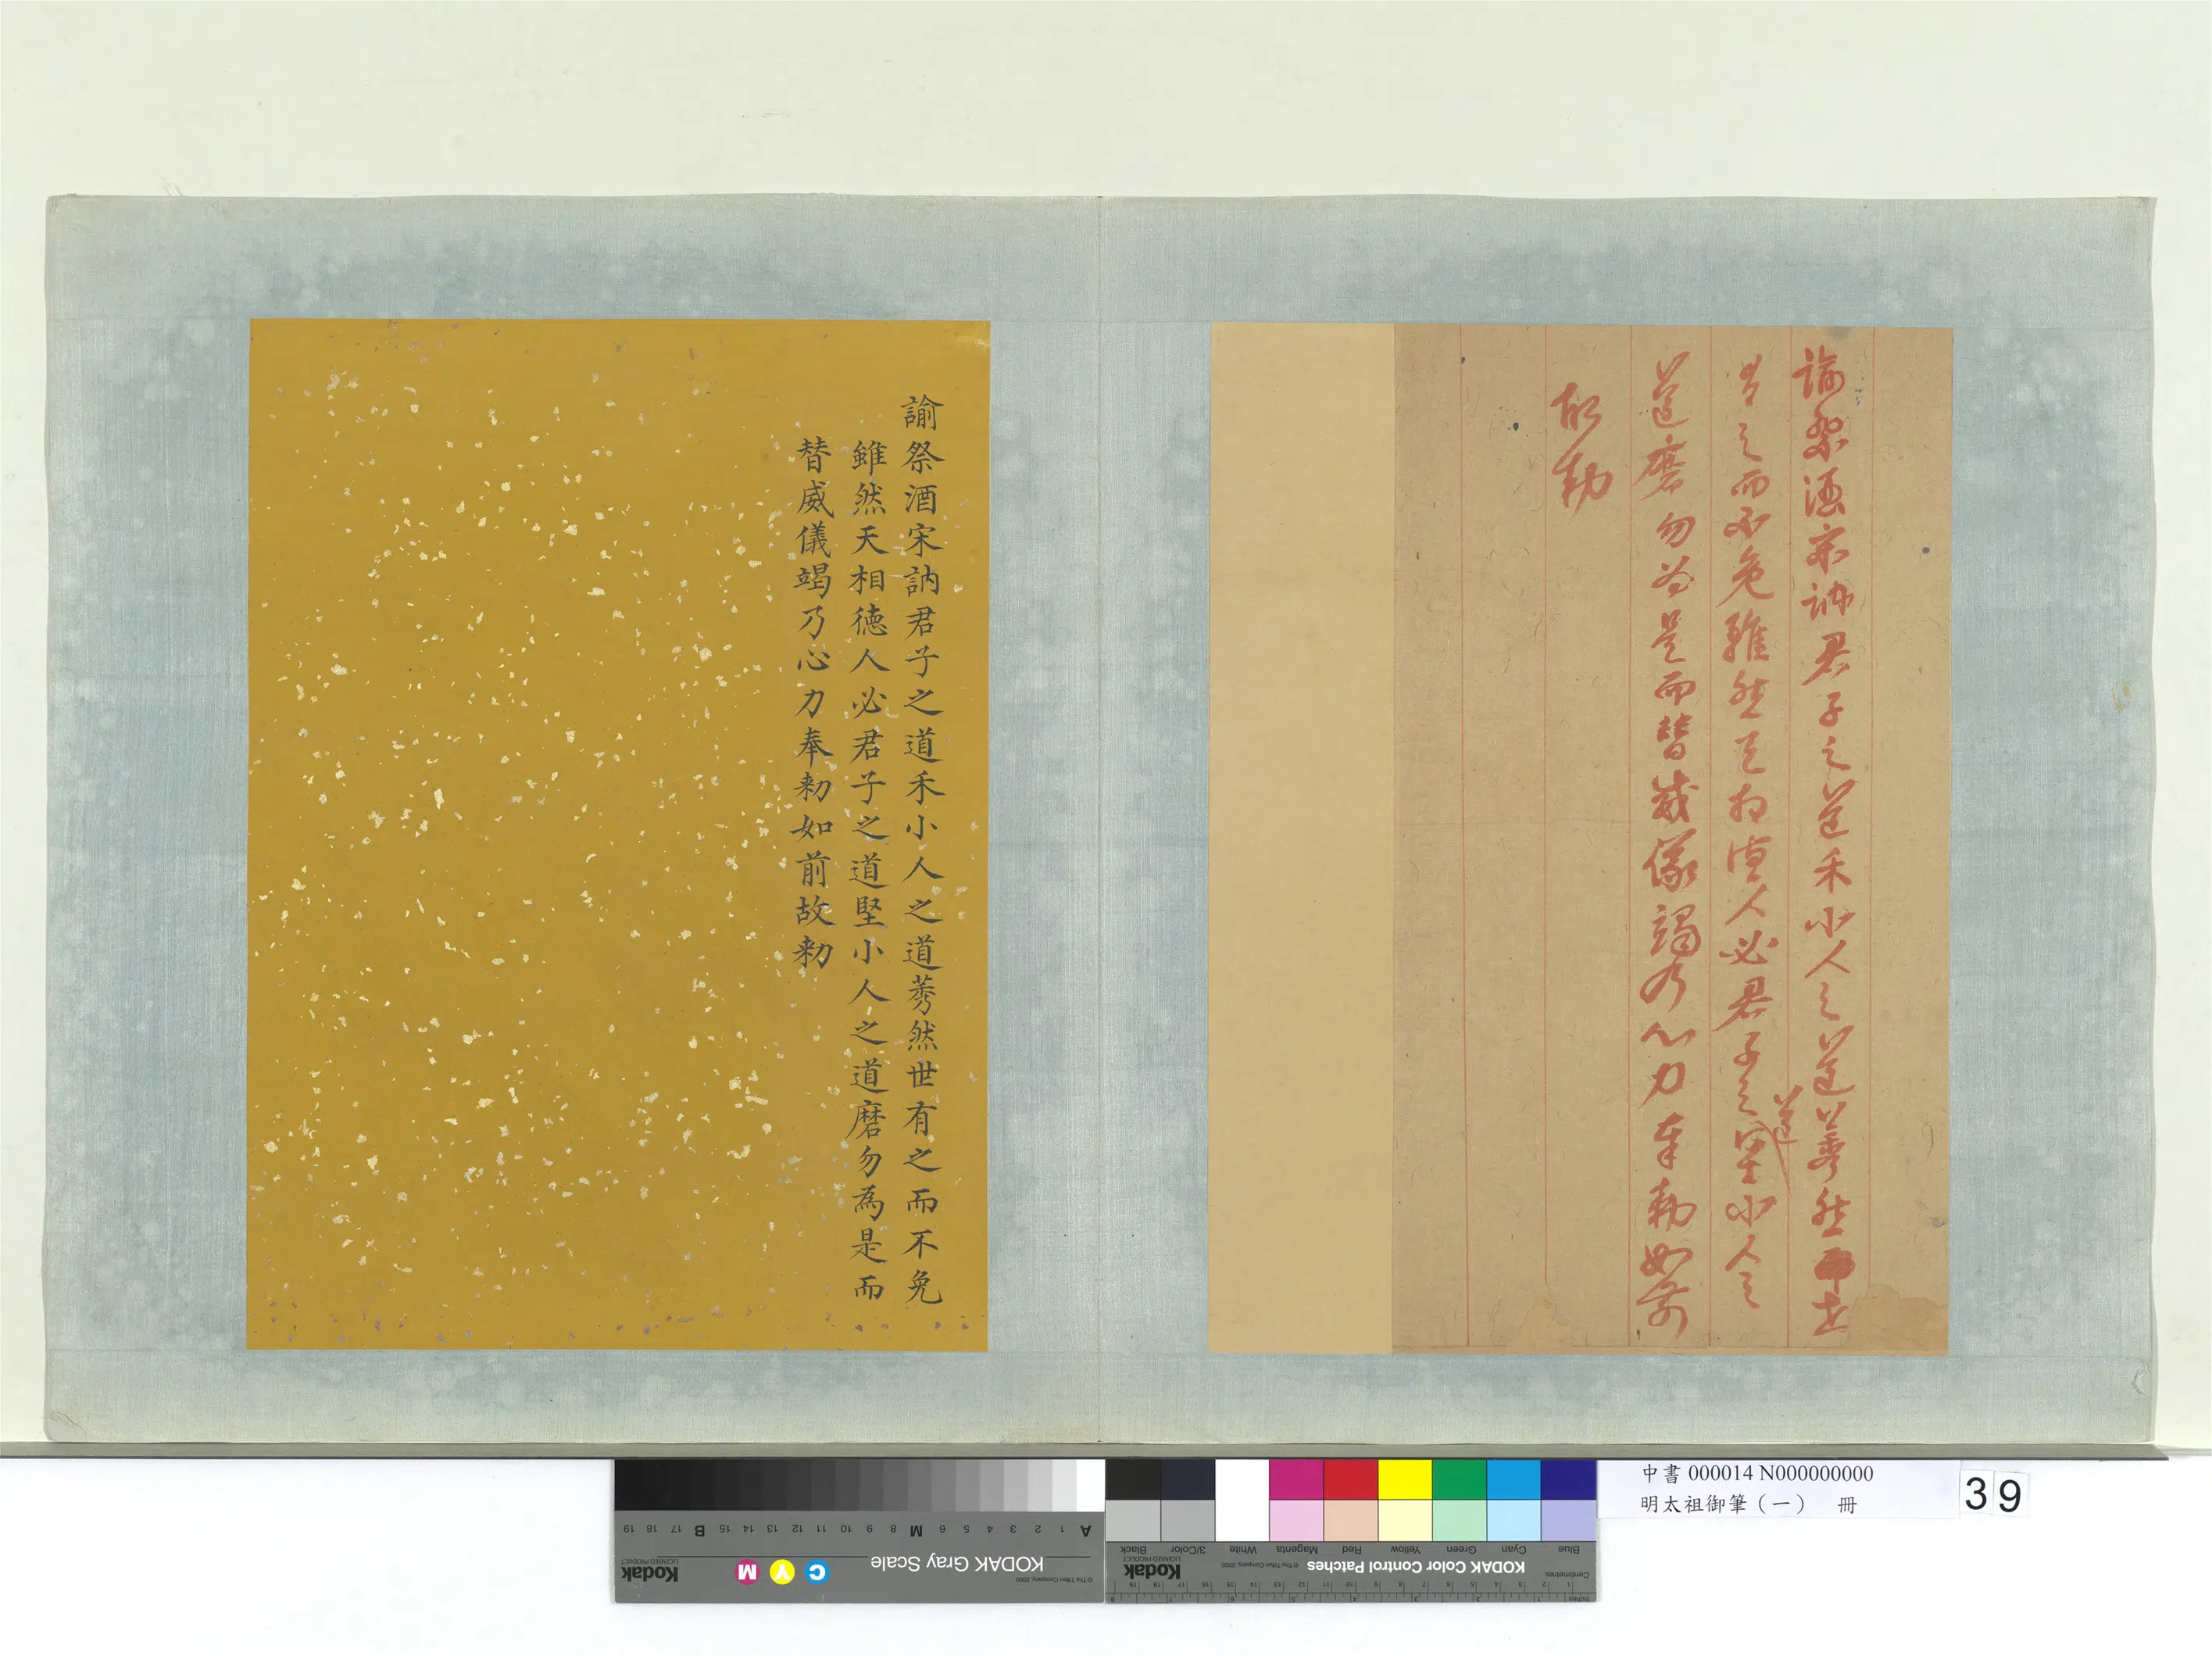 諭祭酒宋訥君子之道禾小人之道莠然世
有之而不免雖然天相德人必君子之道堅小人之
道磨勿為是而替威儀竭乃心力奉勑如前
故勑
諭祭酒宋訥君子之道禾小人之道莠然世有之而不免
雖然天相徳人必君子之道堅小人之道磨勿為是而
替威儀竭乃心力奉勑如前故勑
中書 000014 N000000000
明太祖御筆（一） 冊
39
KODAK Color Control Patches
© The Tiffen Company, 2000
Kodak
LICENSED PRODUCT
Blue Cyan Green Yellow Red Magenta White 3/Color Black
Centimetres
Inches
KODAK Gray Scale
© The Tiffen Company, 2000
C Y M
Kodak
LICENSED PRODUCT
A 1 2 3 4 5 6 M 8 9 10 11 12 13 14 15 B 17 18 19